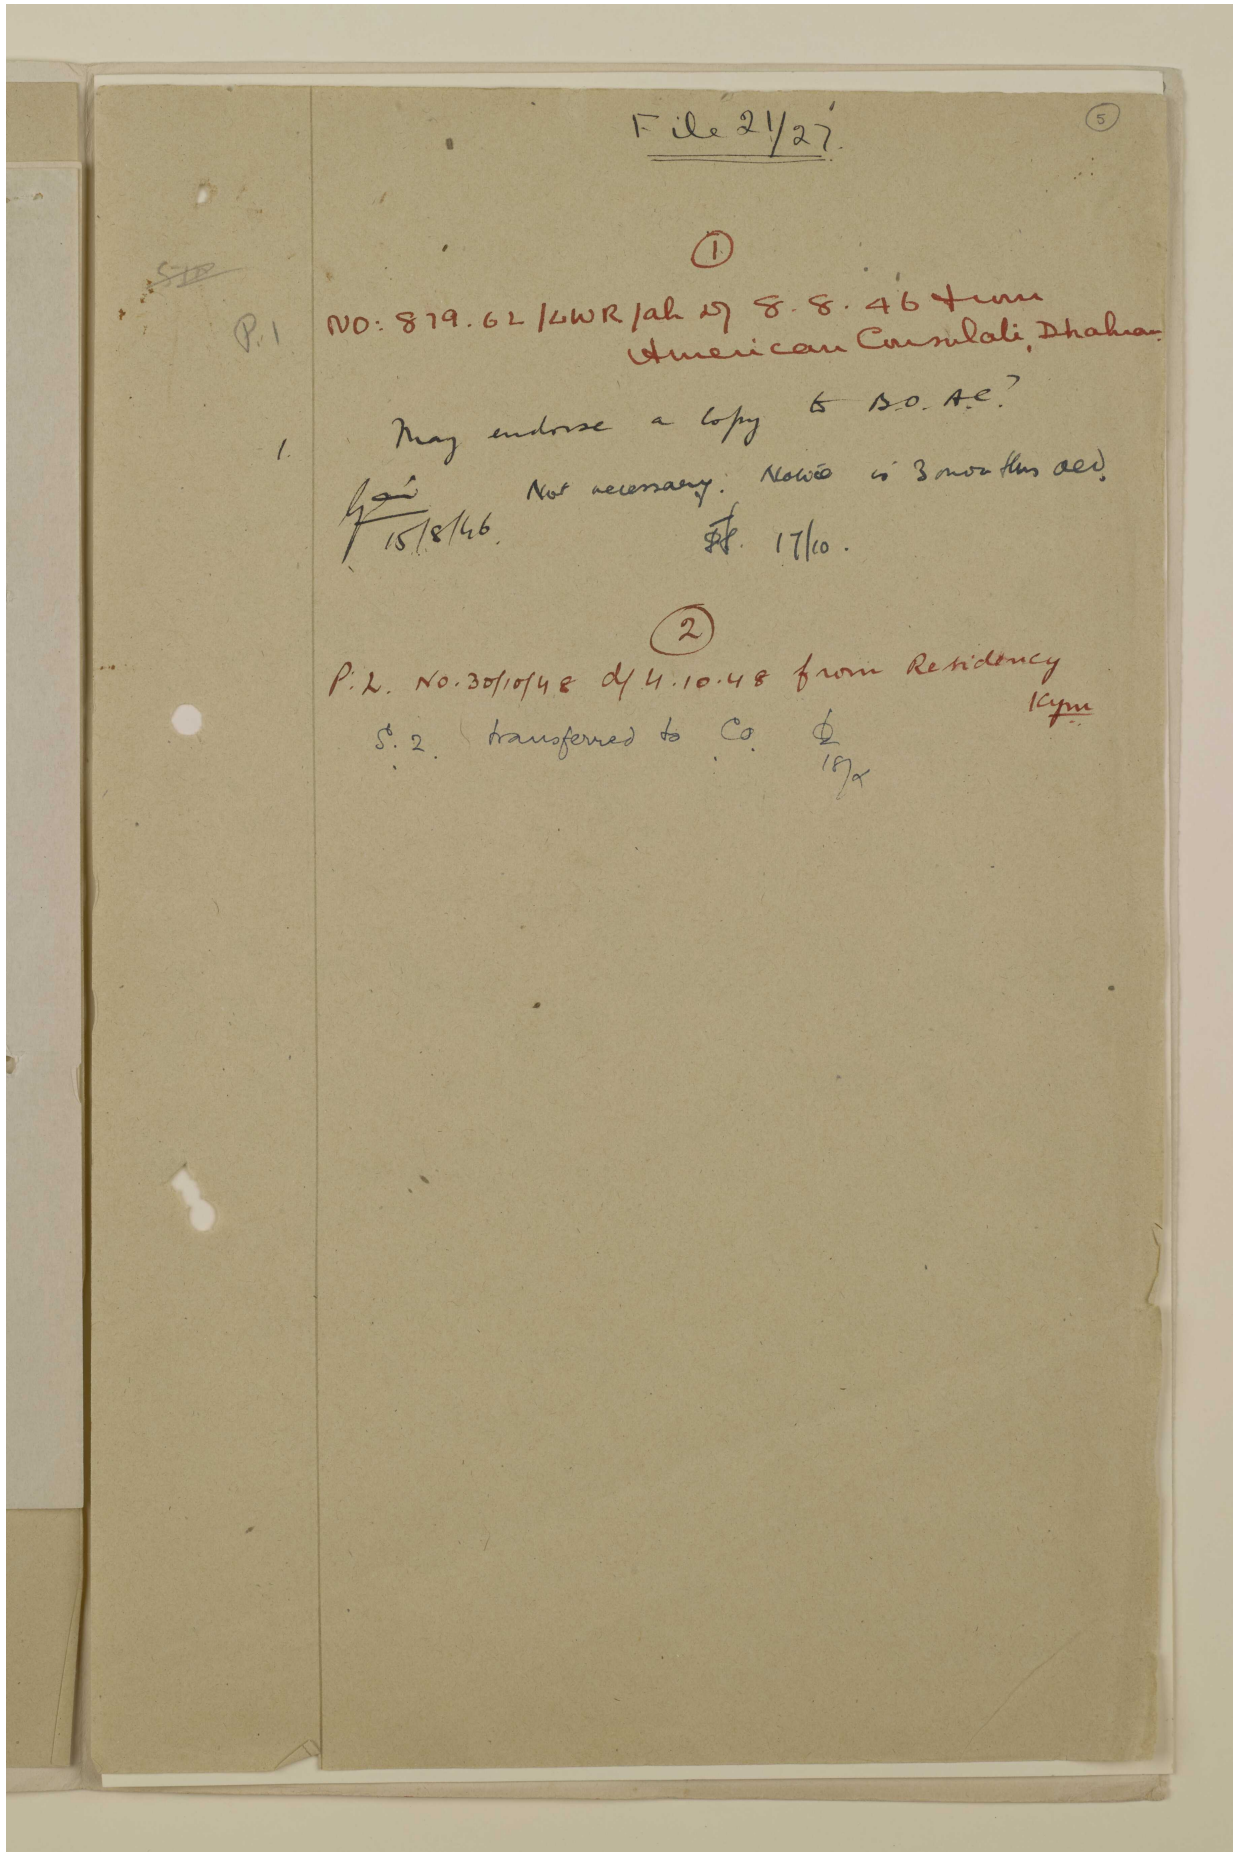 File 21/27.
5
1
P.1
NO: 879.62/LWR/ah d/ 8.8.46 from
American Consulate, Dhahran
1. May endorse a copy to B.O.A.C?
Not necessary. Notice is 3 months old.
15/8/46.
17/10.
2
P.L. No.30/10/48 d/ 4.10.48 from Residency
S.2. transferred to Co.
18/x